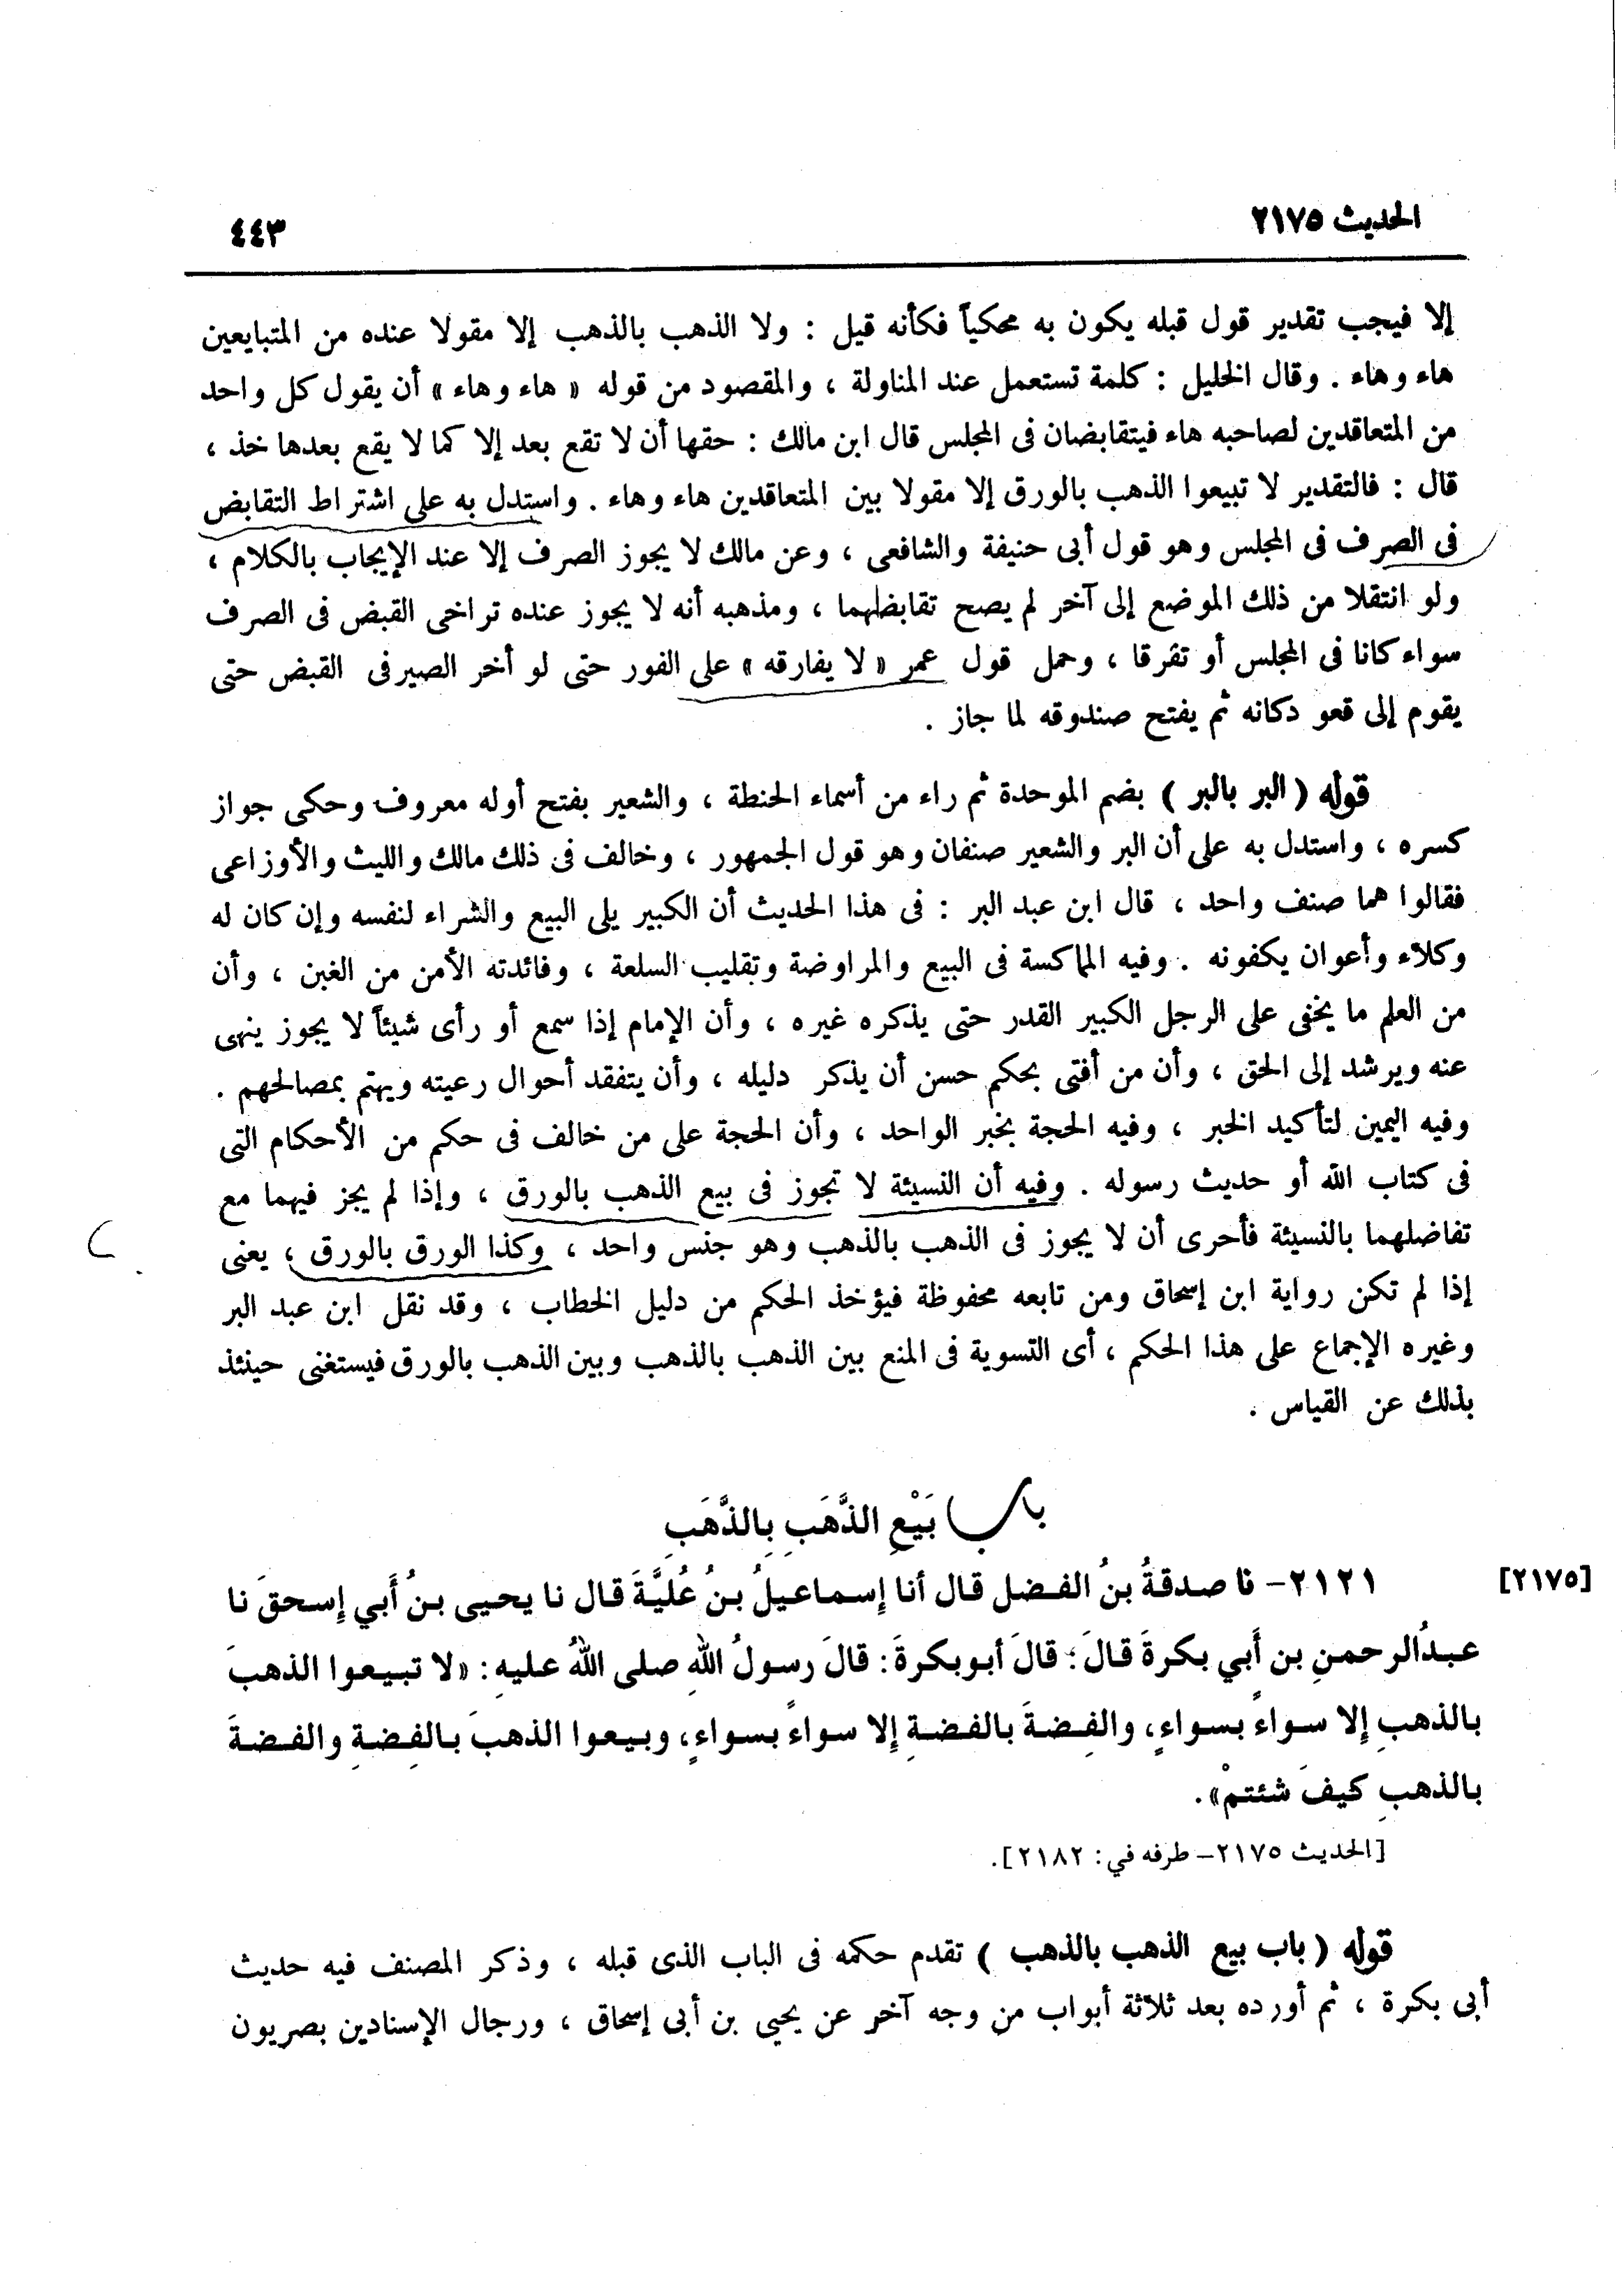 الحديث ٢١٧٥
٤٤٣
إلا فيجب تقدير قول قبله يكون به محكياً فكأنه قيل : ولا الذهب بالذهب إلا مقولا عنده من المتبايعين
هاء وهاء . وقال الخليل : كلمة تستعمل عند المناولة ، والمقصود من قوله « هاء وهاء » أن يقول كل واحد
من المتعاقدين لصاحبه هاء فيتقابضان فى المجلس قال ابن مالك : حقها أن لا تقع بعد إلا كما لا يقع بعدها خذ ،
قال : فالتقدير لا تبيعوا الذهب بالورق إلا مقولا بين المتعاقدين هاء وهاء . واستدل به على اشتراط التقابض
فى الصرف فى المجلس وهو قول أبى حنيفة والشافعى ، وعن مالك لا يجوز الصرف إلا عند الإيجاب بالكلام ،
ولو انتقلا من ذلك الموضع إلى آخر لم يصح تقابضهما ، ومذهبه أنه لا يجوز عنده تراخى القبض فى الصرف
سواء كانا فى المجلس أو تفرقا ، وحمل قول عمر « لا يفارقه » على الفور حتى لو أخر الصيرفى القبض حتى
يقوم إلى قعو دكانه ثم يفتح صندوقه لما جاز .
قوله ( البر بالبر ) بضم الموحدة ثم راء من أسماء الحنطة ، والشعير بفتح أوله معروف وحكى جواز
كسره ، واستدل به على أن البر والشعير صنفان وهو قول الجمهور ، وخالف فى ذلك مالك والليث والأوزاعى
فقالوا هما صنف واحد ، قال ابن عبد البر : فى هذا الحديث أن الكبير يلى البيع والشراء لنفسه وإن كان له
وكلاء وأعوان يكفونه . وفيه المماكسة فى البيع والمراوضة وتقليب السلعة ، وفائدته الأمن من الغبن ، وأن
من العلم ما يخفى على الرجل الكبير القدر حتى يذكره غيره ، وأن الإمام إذا سمع أو رأى شيئاً لا يجوز ينهى
عنه ويرشد إلى الحق ، وأن من أفتى بحكم حسن أن يذكر دليله ، وأن يتفقد أحوال رعيته ويهتم بمصالحهم .
وفيه اليمين لتأكيد الخبر ، وفيه الحجة بخبر الواحد ، وأن الحجة على من خالف فى حكم من الأحكام التى
فى كتاب الله أو حديث رسوله . وفيه أن النسيئة لا تجوز فى بيع الذهب بالورق ، وإذا لم يجز فيهما مع
تفاضلهما بالنسيئة فأحرى أن لا يجوز فى الذهب بالذهب وهو جنس واحد ، وكذا الورق بالورق ، يعنى
إذا لم تكن رواية ابن إسحاق ومن تابعه محفوظة فيؤخذ الحكم من دليل الخطاب ، وقد نقل ابن عبد البر
وغيره الإجماع على هذا الحكم ، أى التسوية فى المنع بين الذهب بالذهب وبين الذهب بالورق فيستغنى حينئذ
بذلك عن القياس .
باب بَيْعِ الذَّهَبِ بِالذَّهَبِ
[٢١٧٥] ٢١٢١- نا صدقةُ بنُ الفضل قال أنا إسماعيلُ بنُ عُلَيَّةَ قال نا يحيى بنُ أَبي إسحقَ نا
عبدُالرحمنِ بن أَبي بكرةَ قالَ؛ قالَ أبوبكرةَ: قالَ رسولُ اللهِ صلى اللهُ عليهِ: «لا تبيعوا الذهبَ
بالذهبِ إلا سواءً بسواءٍ، والفِضةَ بالفضةِ إلا سواءً بسواءٍ، وبيعوا الذهبَ بالفِضةِ والفضةَ
بالذهبِ كيفَ شئتمْ».
[الحديث ٢١٧٥- طرفه في: ٢١٨٢].
قوله ( باب بيع الذهب بالذهب ) تقدم حكمه فى الباب الذى قبله ، وذكر المصنف فيه حديث
أبى بكرة ، ثم أورده بعد ثلاثة أبواب من وجه آخر عن يحيى بن أبى إسحاق ، ورجال الإسنادين بصريون